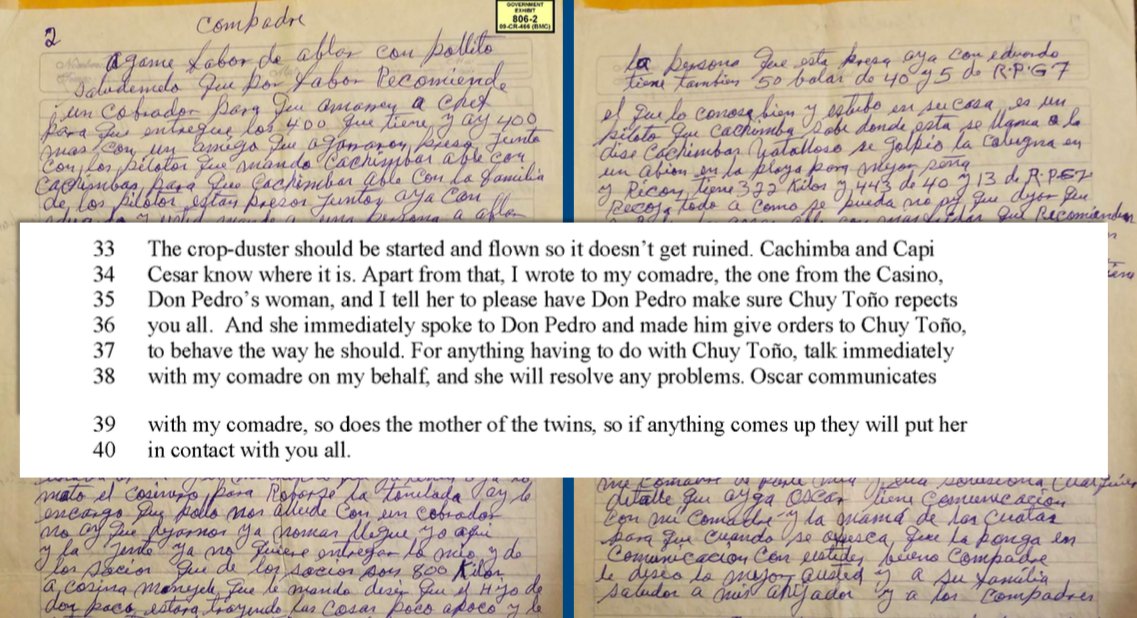 2
Compadre
GOVERNMENT
EXHIBIT
806-2
09-CR-466 (BMC)
agame fabor de ablar con pollito
saludemelo que por fabor Recomiende
un cobrador para que amarren a chef
para que entregue los 400 que tiene y ay 400
mas con un amigo que agarraron preso junto
con los pilotos que mando Cachimbas able con
Cachimbas para que Cachimbas able con la familia
de los pilotos estan presos juntos aya con
a una persona a ablar
la persona que esta presa aya con eduardo
tiene tambien 50 balas de 40 y 5 de R.P.G 7
el que lo conose bien y estubo en su casa es un
piloto que cachimba sabe donde esta se llama o le
dise Cachimbas se golpio la
un abion en la playa para mejor seña
y Ricon tiene 372 Kilos y 443 de 40 y 13 de R.P.G7
Recoja todo a como se pueda no que
que Recomienden
33 The crop-duster should be started and flown so it doesn't get ruined. Cachimba and Capi
34 Cesar know where it is. Apart from that, I wrote to my comadre, the one from the Casino,
35 Don Pedro's woman, and I tell her to please have Don Pedro make sure Chuy Toño repects
36 you all. And she immediately spoke to Don Pedro and made him give orders to Chuy Toño,
37 to behave the way he should. For anything having to do with Chuy Toño, talk immediately
38 with my comadre on my behalf, and she will resolve any problems. Oscar communicates
39 with my comadre, so does the mother of the twins, so if anything comes up they will put her
40 in contact with you all.
mato el cosinero para Robarse la tonelada ay le
encargo que pollo nos allude con un cobrador
no ay que dejarnos ya nomas llegue yo aqui
y la jente ya no quiere entregar lo mio y de
los socios que de los socios son 800 Kilos
a cosina que le mando desir que el Hijo de
don paco estara trayendo las cosas poco apoco y le
detalle que ayga Oscar tiene Comunicacion
con mi comadre y la mamá de las cuatas
para que cuando se ofresca que la ponga en
Comunicacion con ustedes bueno compadre
le deseo lo mejor austed y a su familia
saludos a mis ahijados y a los Compadres